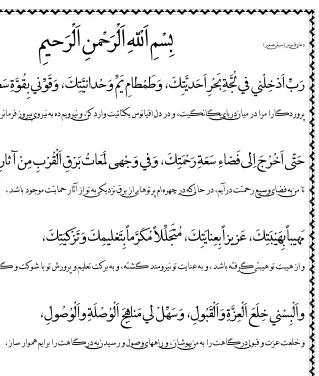 بِسْمِ اَللّٰهِ اَلْرَحْمنِ اَلْرَحیمِ
رَبِّ اَدْخِلْنی فی لُجَّةِ بَحْرِ اَحَدِیَّتِکَ، وَطَمْطامِ یَمِّ وَحْدانِیَّتِکَ، وَقَوِّنی بِقُوَّةِ
پروردگارا مرا در میان دریای یگانگیت، و در دل اقیانوس یکتائیت وارد کن و نیرویم ده به نیروی پیروز
حَتّی اَخْرُجَ اِلی فَضاءِ سَعَةِ رَحْمَتِکَ، وَفی وَجْهی لَمَعاتُ بَرْقِ الْقُرْبِ مِنْ آثارِ
تا من به فضای وسیع رحمتت درآیم، در حالی که در چهره ام پرتوها از برق نزدیکی به تو از آثار حمایتت موجود باشد،
مَهیباً بِهَیْبَتِکَ، عَزیزاً بِعِنایَتِکَ، مُتَجَلِّلاً مُکَرَّماً بِتَعْلیمِکَ وَتَزْکِیَتِکَ،
و از هیبت تو هیبتی گرفته باشد، و به عنایت تو نیرومند گشته، و به برکت تعلیم و پرورش تو با شوکت و
وَاَلْبِسْنی خِلَعَ الْعِزَّةِ وَالْقَبُولِ، وَسَهِّلْ لی مَناهِجَ الْوُصْلَةِ وَالْوُصُولِ،
و خلعت عزت و قبول درگاهت را به من بپوشان، و راههای وصول و رسیدن به درگاهت را برایم هموار ساز،